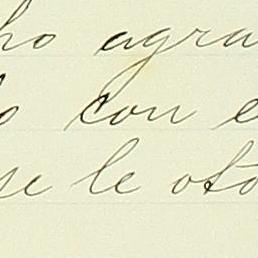 ho agra
o con e
se le oto